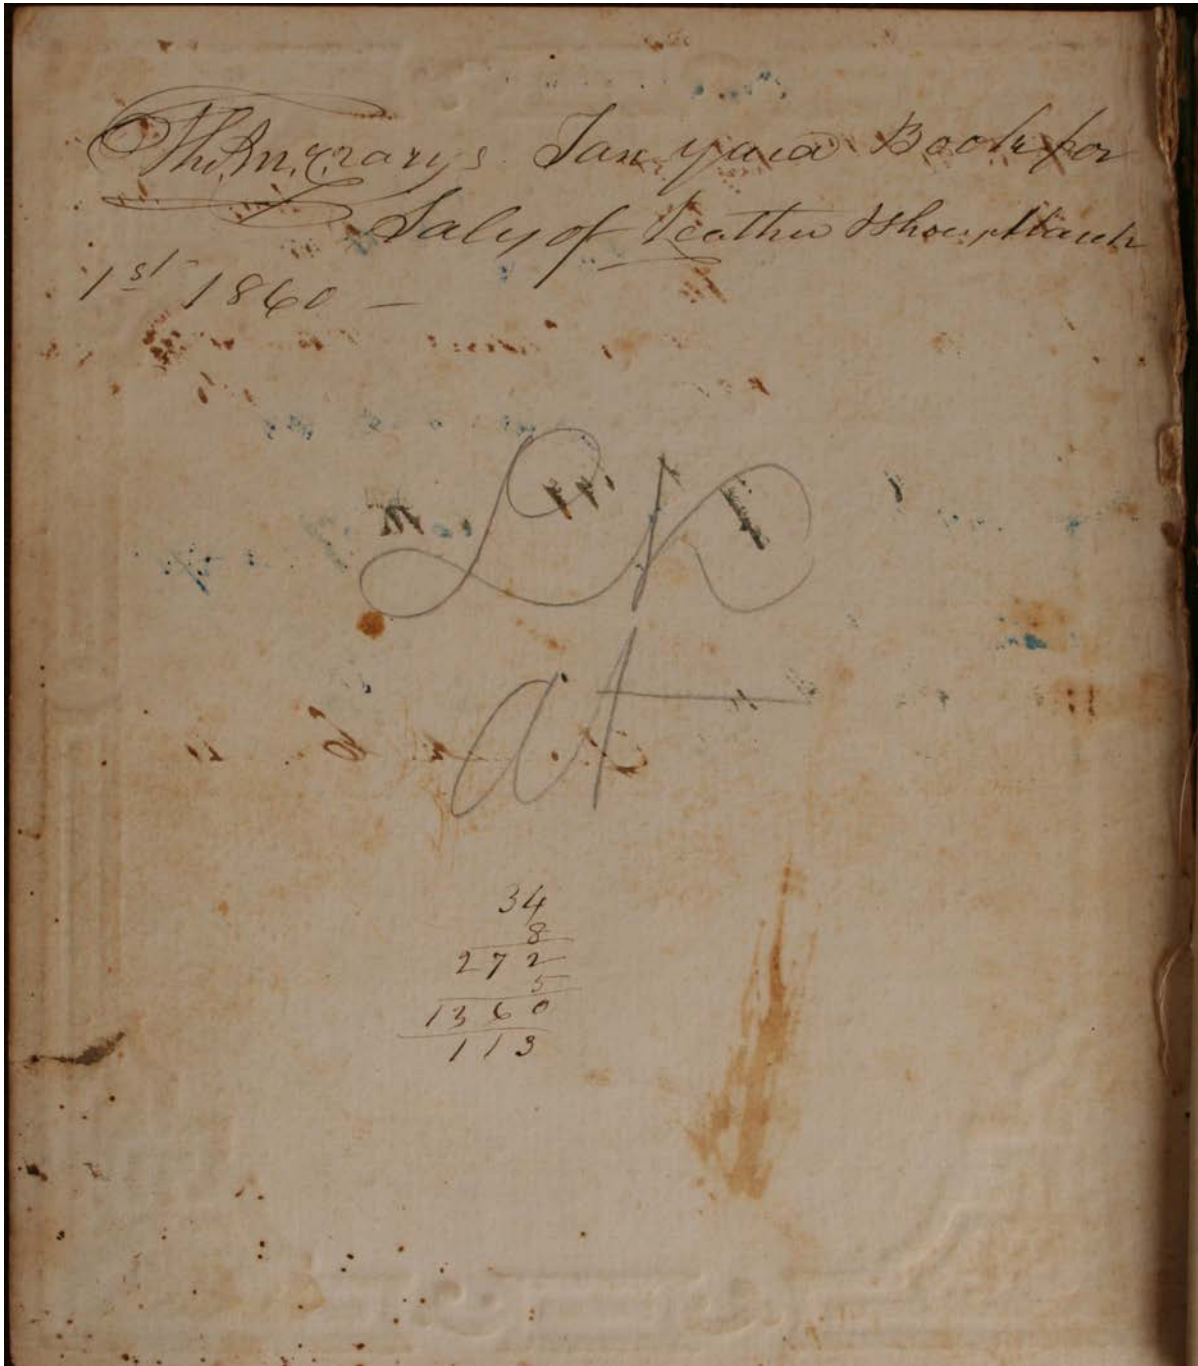 Tan yard Book for
Sales of Leather & Shoes March
1st 1860 —
34
8
272
5
1360
113